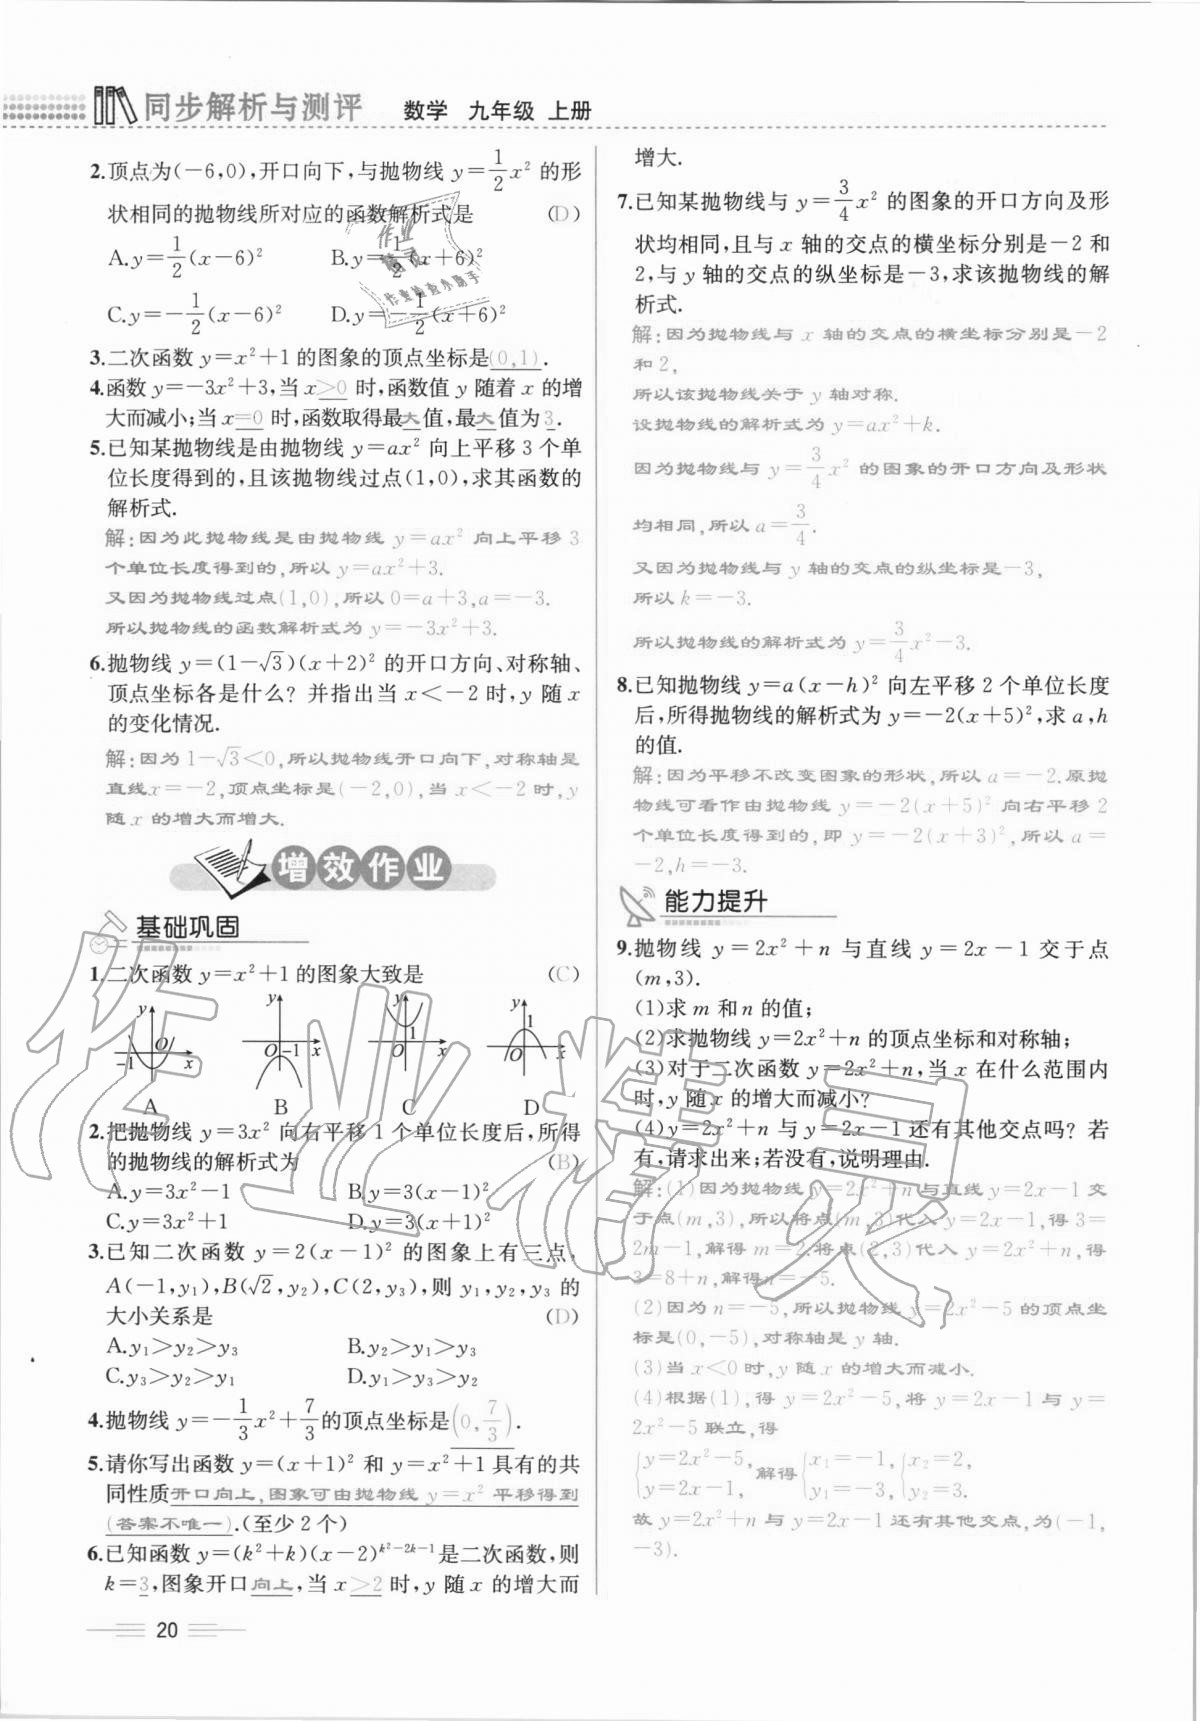 同步解析与测评 数学 九年级 上册
2.顶点为(-6,0),开口向下,与抛物线 y=1/2x² 的形
状相同的抛物线所对应的函数解析式是 (D)
A.y=1/2(x-6)² B.y=1/2(x+6)²
C.y=-1/2(x-6)² D.y=-1/2(x+6)²
3.二次函数 y=x²+1 的图象的顶点坐标是(0,1).
4.函数 y=-3x²+3,当 x>0 时,函数值 y 随着 x 的增
大而减小;当 x=0 时,函数取得最大值,最大值为3.
5.已知某抛物线是由抛物线 y=ax² 向上平移 3 个单
位长度得到的,且该抛物线过点(1,0),求其函数的
解析式.
解:因为此抛物线是由抛物线 y=ax² 向上平移 3
个单位长度得到的,所以 y=ax²+3.
又因为抛物线过点(1,0),所以 0=a+3,a=-3.
所以抛物线的函数解析式为 y=-3x²+3.
6.抛物线 y=(1-√3)(x+2)² 的开口方向、对称轴、
顶点坐标各是什么? 并指出当 x<-2 时,y 随 x
的变化情况.
解:因为 1-√3<0,所以抛物线开口向下,对称轴是
直线x=-2,顶点坐标是(-2,0),当 x<-2 时,y
随 x 的增大而增大.
增效作业
基础巩固
1.二次函数 y=x²+1 的图象大致是 (C)
y O -1 x
y O -1 x
y 1 O x
y 1 O x
A B C D
2.把抛物线 y=3x² 向右平移 1 个单位长度后,所得
的抛物线的解析式为 (B)
A.y=3x²-1 B.y=3(x-1)²
C.y=3x²+1 D.y=3(x+1)²
3.已知二次函数 y=2(x-1)² 的图象上有三点,
A(-1,y₁),B(√2,y₂),C(2,y₃),则 y₁,y₂,y₃ 的
大小关系是 (D)
A.y₁>y₂>y₃ B.y₂>y₁>y₃
C.y₃>y₂>y₁ D.y₁>y₃>y₂
4.抛物线 y=-1/3x²+7/3的顶点坐标是(0,7/3).
5.请你写出函数 y=(x+1)² 和 y=x²+1 具有的共
同性质开口向上,图象可由抛物线 y=x² 平移得到
(答案不唯一).(至少 2 个)
6.已知函数 y=(k²+k)(x-2)^(k²-2k-1)是二次函数,则
k=3,图象开口向上,当 x>2 时,y 随 x 的增大而
20
增大.
7.已知某抛物线与 y=3/4x² 的图象的开口方向及形
状均相同,且与 x 轴的交点的横坐标分别是-2 和
2,与 y 轴的交点的纵坐标是-3,求该抛物线的解
析式.
解:因为抛物线与 x 轴的交点的横坐标分别是-2
和 2,
所以该抛物线关于 y 轴对称.
设抛物线的解析式为 y=ax²+k.
因为抛物线与 y=3/4x² 的图象的开口方向及形状
均相同,所以 a=3/4.
又因为抛物线与 y 轴的交点的纵坐标是-3,
所以 k=-3.
所以抛物线的解析式为 y=3/4x²-3.
8.已知抛物线 y=a(x-h)² 向左平移 2 个单位长度
后,所得抛物线的解析式为 y=-2(x+5)²,求 a,h
的值.
解:因为平移不改变图象的形状,所以 a=-2.原抛
物线可看作由抛物线 y=-2(x+5)² 向右平移 2
个单位长度得到的,即 y=-2(x+3)²,所以 a=
-2,h=-3.
能力提升
9.抛物线 y=2x²+n 与直线 y=2x-1 交于点
(m,3).
(1)求 m 和 n 的值;
(2)求抛物线 y=2x²+n 的顶点坐标和对称轴;
(3)对于二次函数 y=2x²+n,当 x 在什么范围内
时,y 随 x 的增大而减小?
(4)y=2x²+n 与 y=2x-1 还有其他交点吗? 若
有,请求出来;若没有,说明理由.
解:(1)因为抛物线 y=2x²+n 与直线 y=2x-1 交
于点(m,3),所以将点(m,3)代入 y=2x-1,得 3=
2m-1,解得 m=2.将点(2,3)代入 y=2x²+n,得
3=8+n,解得n=-5.
(2)因为 n=-5,所以抛物线 y=2x²-5 的顶点坐
标是(0,-5),对称轴是 y 轴.
(3)当 x<0 时,y 随 x 的增大而减小.
(4)根据(1),得 y=2x²-5,将 y=2x-1 与 y=
2x²-5 联立,得
{y=2x²-5, y=2x-1, 解得{x₁=-1, y₁=-3, {x₂=2, y₂=3.
故 y=2x²+n 与 y=2x-1 还有其他交点,为(-1,
-3).
作业精灵
作业精灵
作业检查小助手